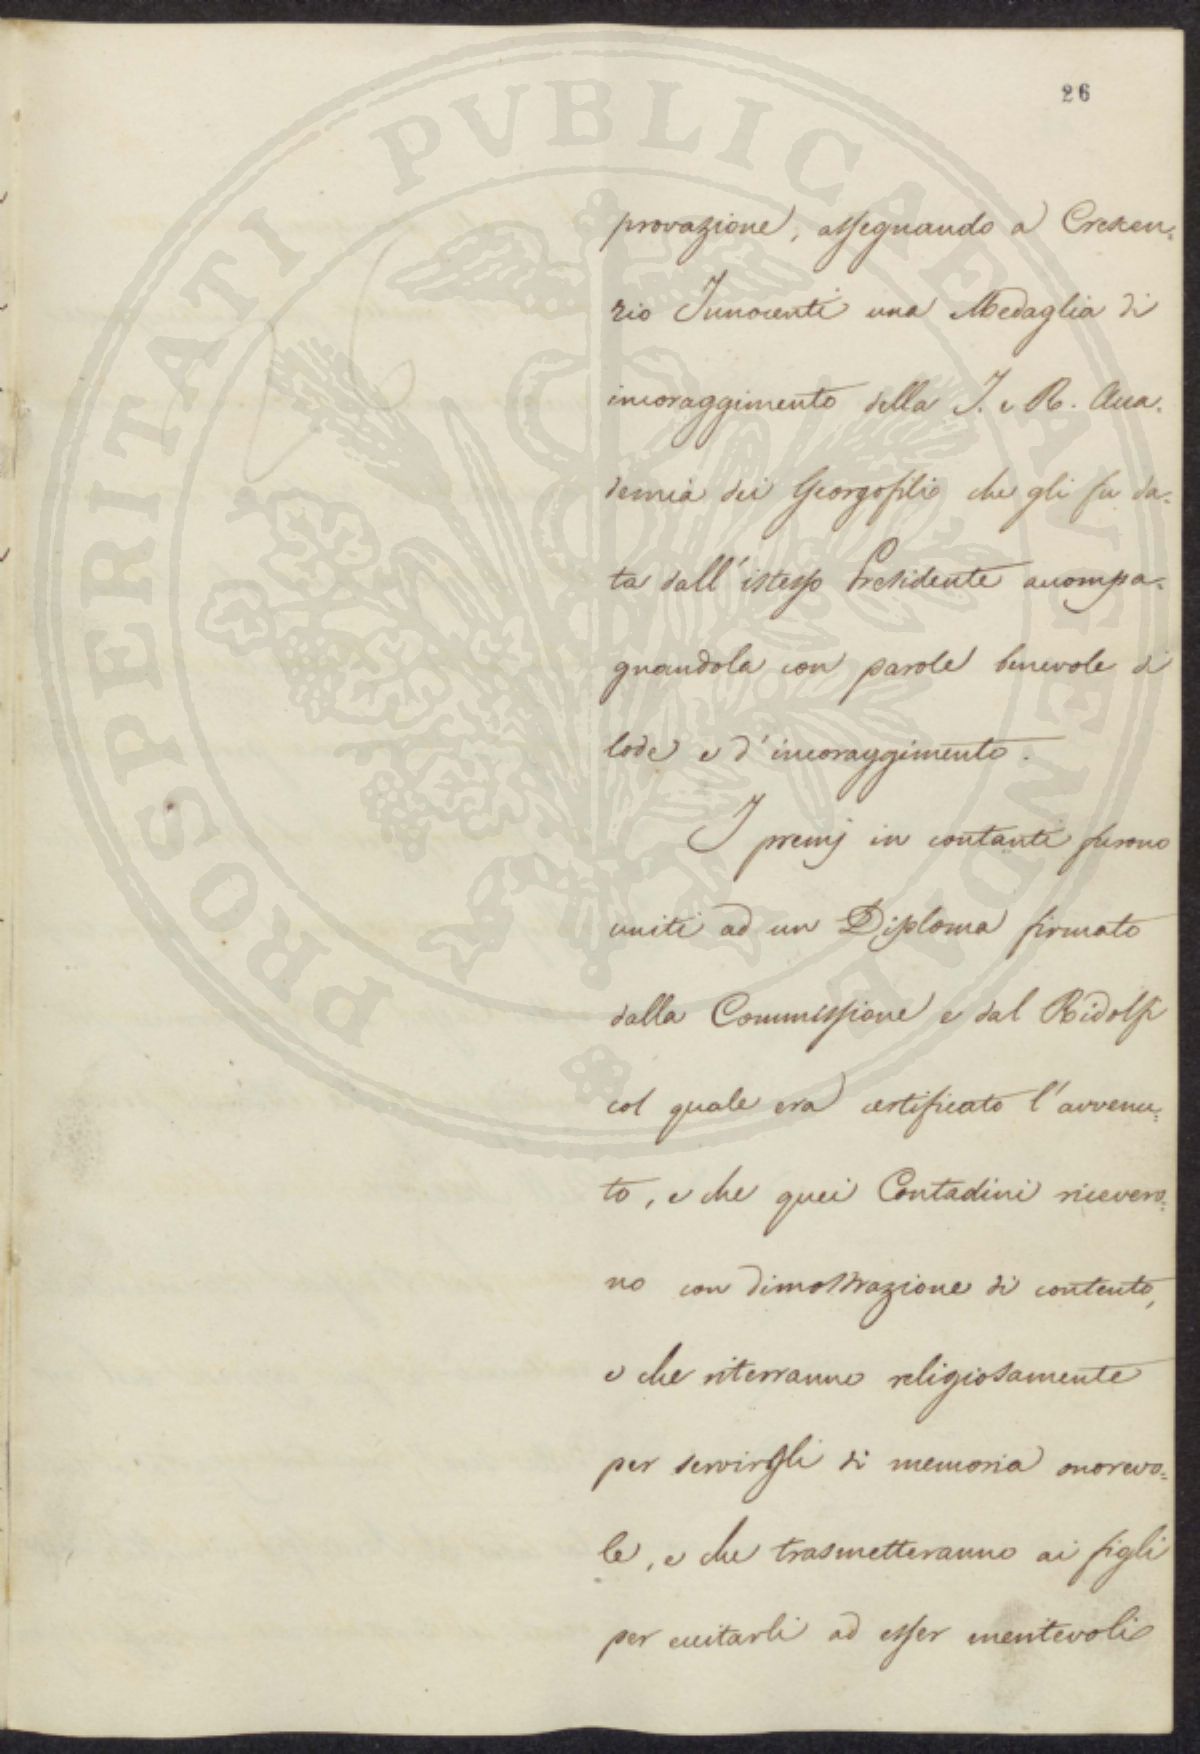 26
PROSPERITATI PVBLICAE AVGENDAE
provazione, assegnando a Crescen=
zio Innocenti una Medaglia di
incoraggimento della I. e R. Acca=
demia dei Georgofili che gli fu da=
ta dall'istesso Presidente accompa=
gnandola con parole benevole di
lode e d'incoraggimento.
I premj in contanti furono
uniti ad un Diploma firmato
dalla Commissione e dal Ridolfi
col quale era certificato l'avvenu=
to, e che quei Contadini ricevero=
no con dimostrazione di contento,
e che riterranno religiosamente
per servirgli di memoria onorevo=
le, e che trasmetteranno ai figli
per eccitarli ad esser meritevoli